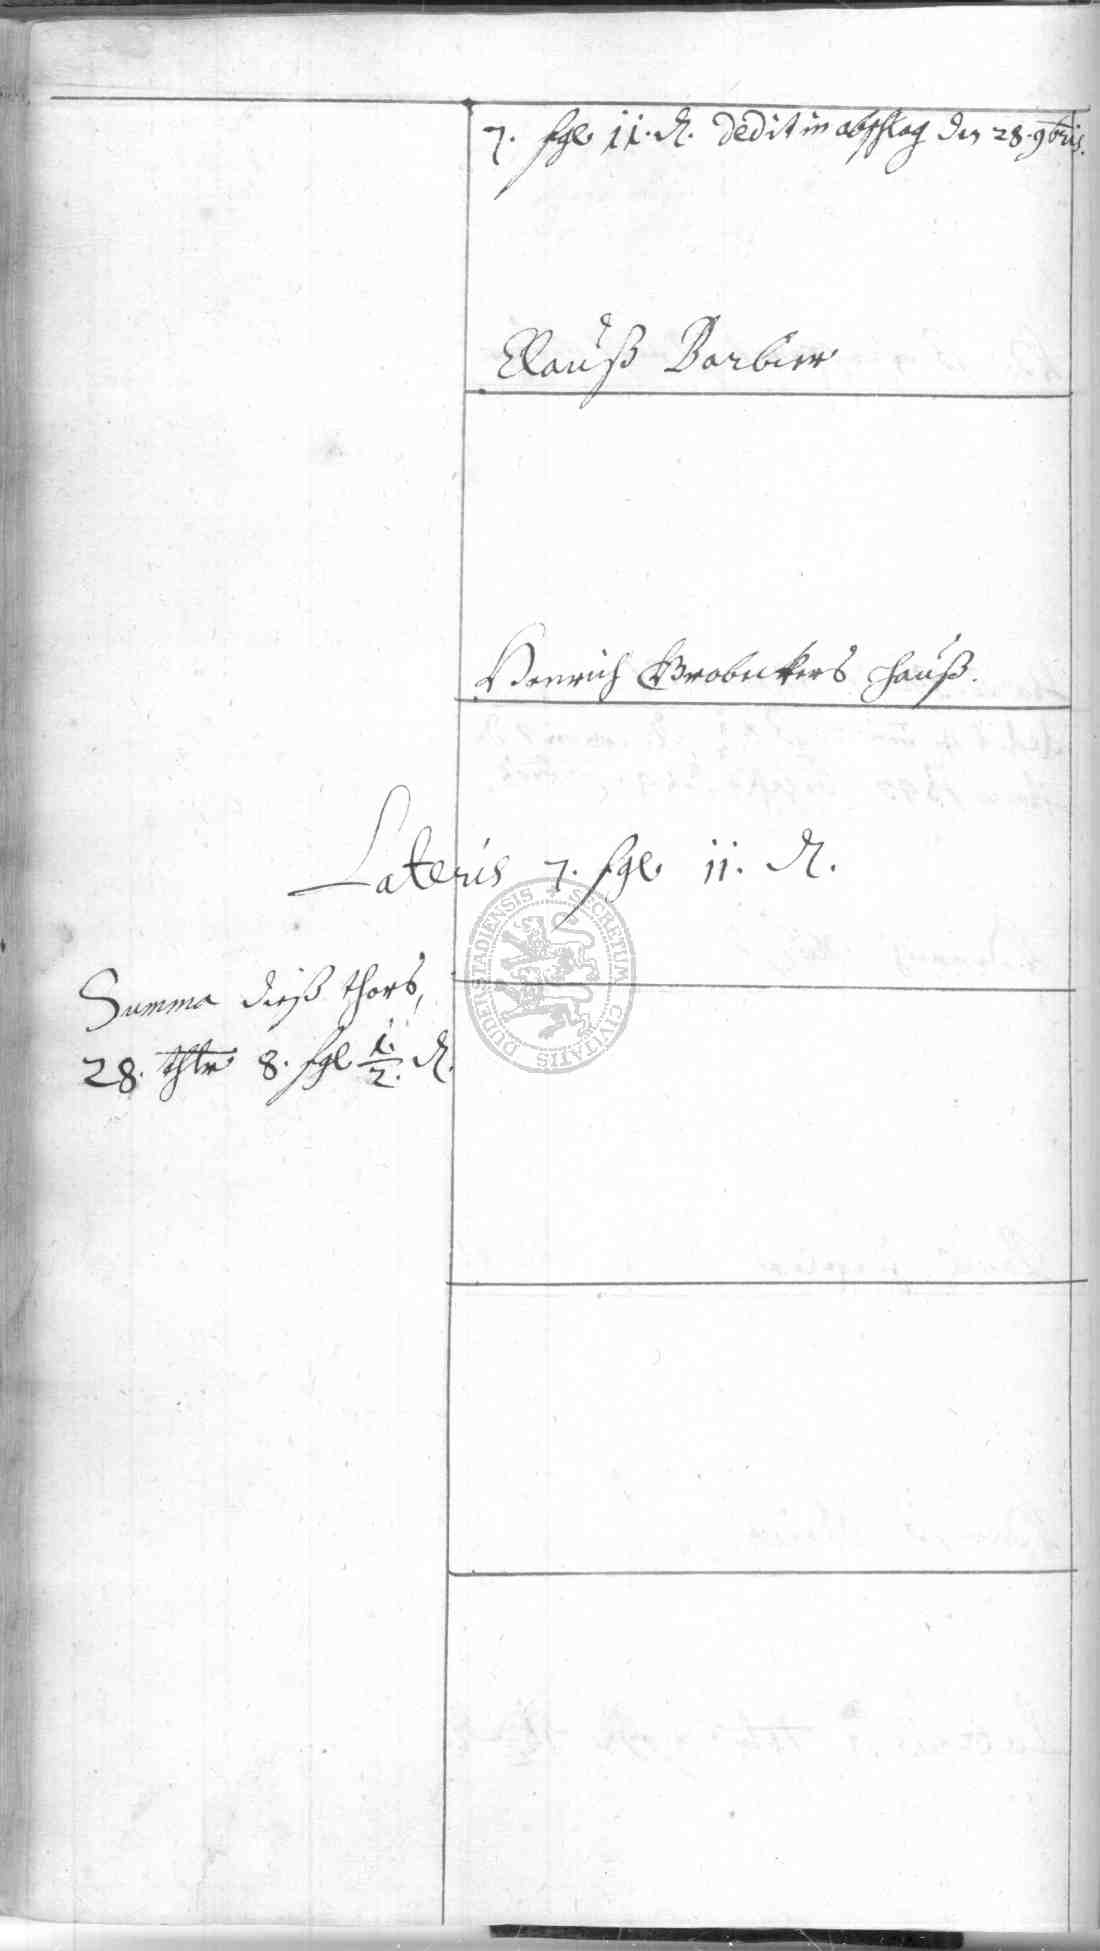 7. sgl. 11. ₰. dedit in abschlag den 28. 9bris.
Clauß Barbier
Henrich Grobeckers hauß.
Lateris 7. sgl. 11. ₰.
Summa dieß thors,
28. thlr 8. sgl. 1/2. ₰.
DUDERSTADIENSIS SECRETUM CIVITATIS